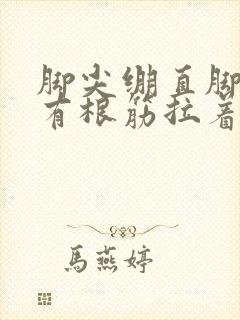 脚尖绷直脚
有根筋拉着
馬燕婷